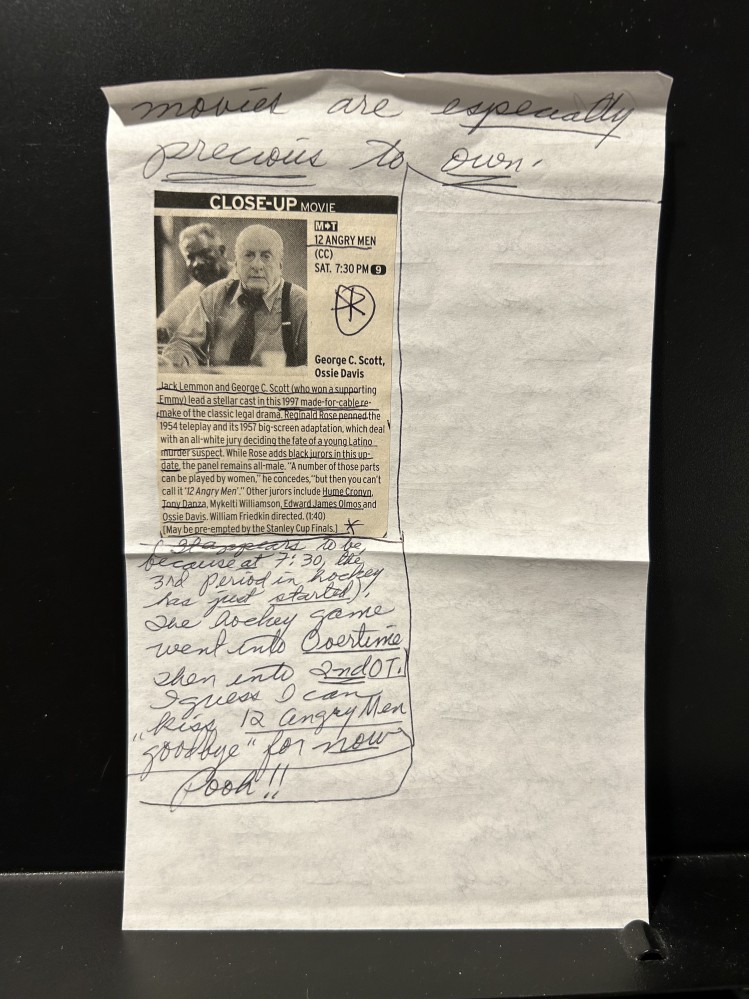 movies are especially
precious to own.
CLOSE-UP MOVIE
M★T
12 ANGRY MEN
(CC)
SAT. 7:30 PM 9
George C. Scott,
Ossie Davis
Jack Lemmon and George C. Scott (who won a supporting
Emmy) lead a stellar cast in this 1997 made-for-cable re-
make of the classic legal drama. Reginald Rose penned the
1954 teleplay and its 1957 big-screen adaptation, which deal
with an all-white jury deciding the fate of a young Latino
murder suspect. While Rose adds black jurors in this up-
date, the panel remains all-male. "A number of those parts
can be played by women," he concedes, "but then you can't
call it '12 Angry Men'." Other jurors include Hume Cronyn,
Tony Danza, Mykelti Williamson, Edward James Olmos and
Ossie Davis. William Friedkin directed. (1:40)
[May be pre-empted by the Stanley Cup Finals.] *
(It appears to be,
because at 7:30, the
3rd Period in hockey
has just started).
The hockey game
went into Overtime
then into 2nd OT.
I guess I can
"kiss 12 Angry Men
goodbye" for now
Pooh!!